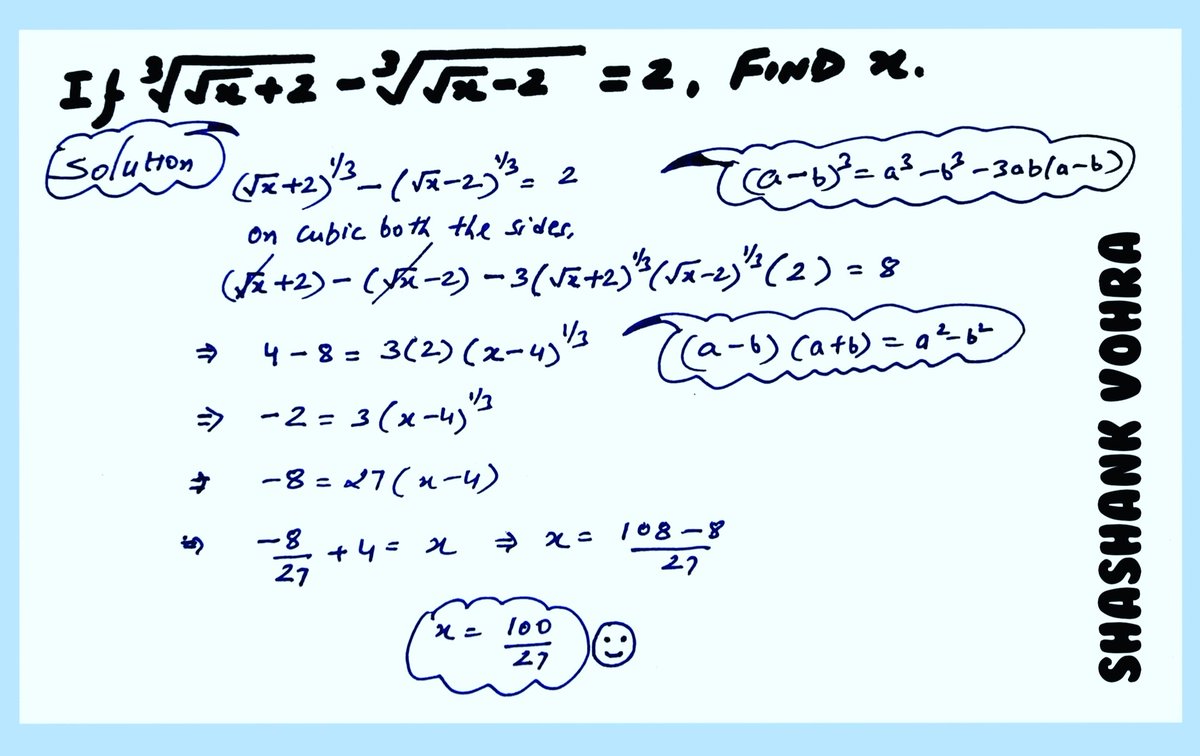 If ∛(√x+2) - ∛(√x-2) = 2, FIND x.
Solution
(√x+2)^1/3 - (√x-2)^1/3 = 2
(a-b)³ = a³-b³-3ab(a-b)
on cubic both the sides,
(√x+2) - (√x-2) - 3(√x+2)^1/3 (√x-2)^1/3 (2) = 8
⇒ 4-8 = 3(2)(x-4)^1/3
(a-b)(a+b) = a²-b²
⇒ -2 = 3(x-4)^1/3
⇒ -8 = 27(x-4)
⇒ -8/27 + 4 = x ⇒ x = 108-8/27
x = 100/27
SHASHANK VOHRA